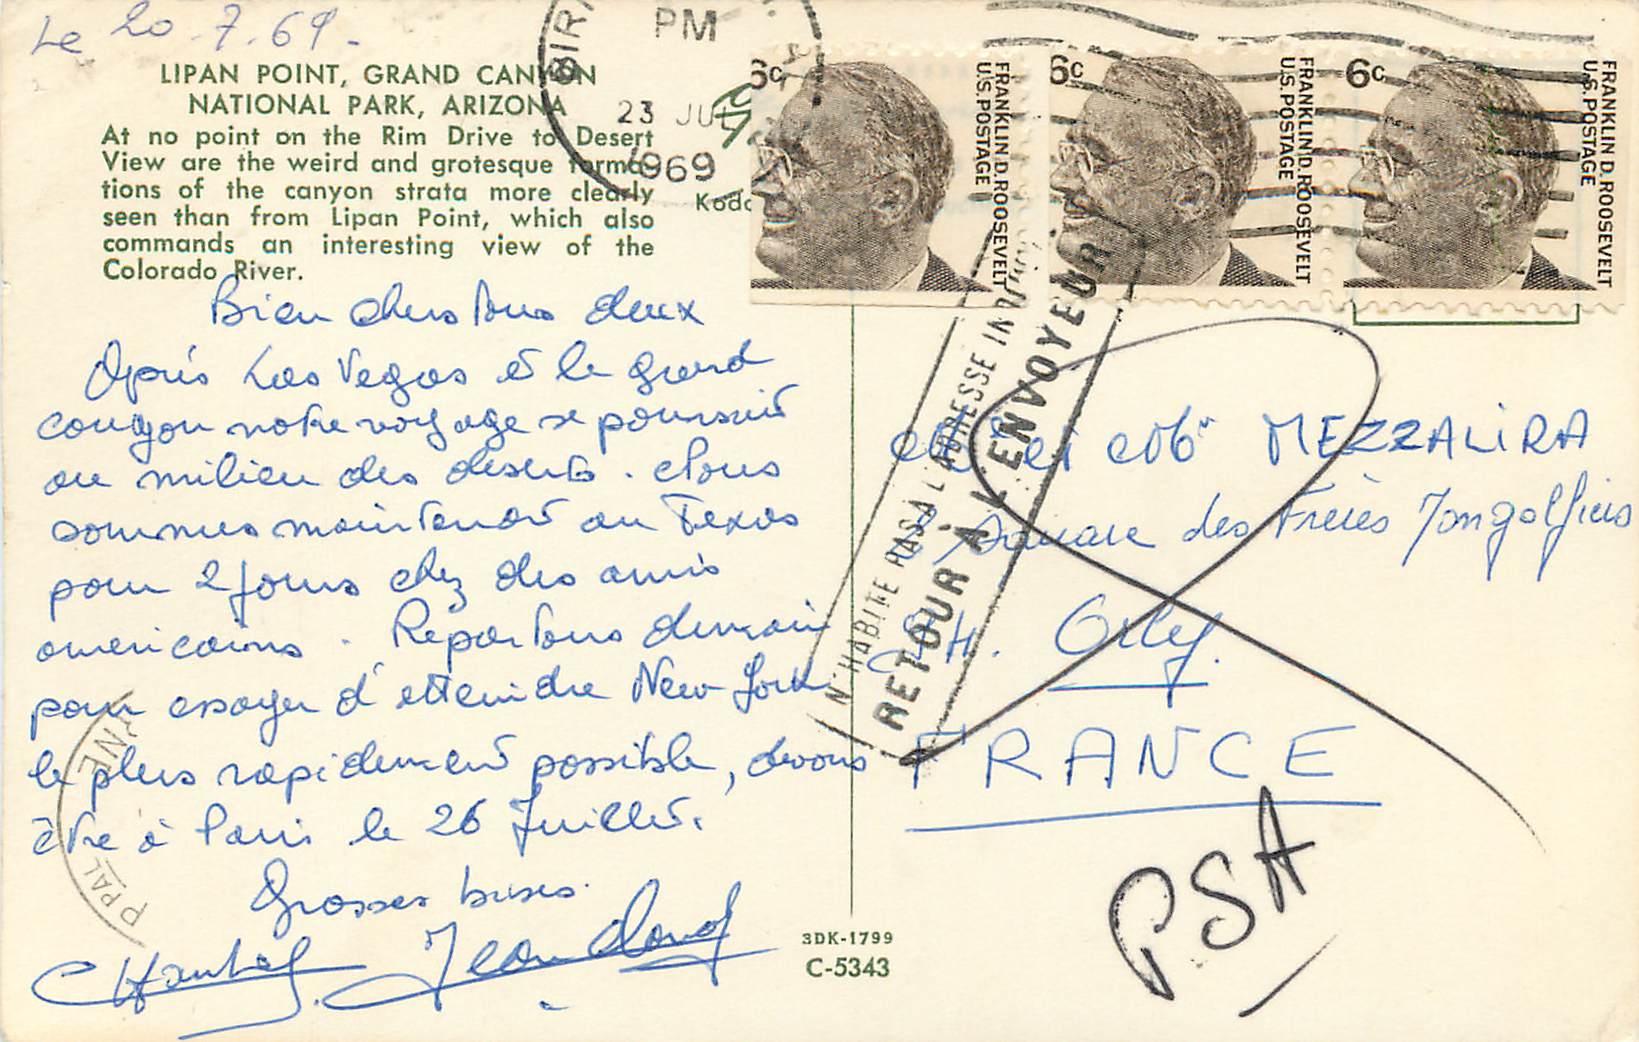 Le 20.7.69.
LIPAN POINT, GRAND CANYON
NATIONAL PARK, ARIZONA
At no point on the Rim Drive to Desert
View are the weird and grotesque forma-
tions of the canyon strata more clearly
seen than from Lipan Point, which also
commands an interesting view of the
Colorado River.
Bien chers tous deux
Après Las Vegas et le grand
canyon notre voyage se poursuit
au milieu des déserts. Nous
sommes maintenant au Texas
pour 2 jours chez des amis
américains. Repartons demain
pour essayer d'atteindre New York
le plus rapidement possible, devons
être à Paris le 26 Juillet.
Grosses bises.
Chantal Jean Claude
PM
23 JUL
1969
6c
FRANKLIN D. ROOSEVELT
U.S. POSTAGE
6c
FRANKLIN D. ROOSEVELT
U.S. POSTAGE
6c
FRANKLIN D. ROOSEVELT
U.S. POSTAGE
N'HABITE PAS A L'ADRESSE
RETOUR A L'ENVOYEUR
et MEZZALIRA
Square des Frères Mongolfiers
94. Orly.
FRANCE
PSA
PPAL
3DK-1799
C-5343